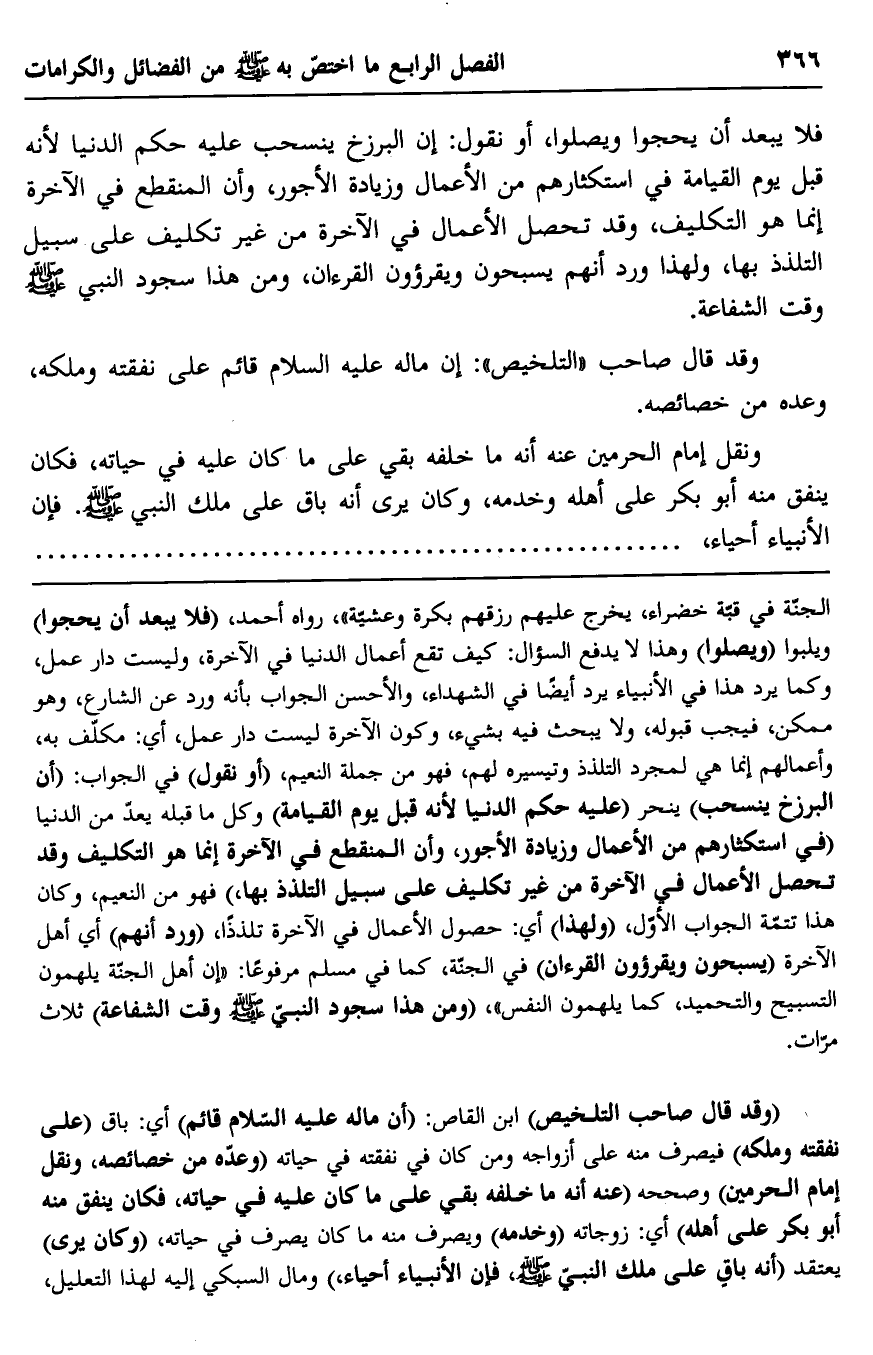 ٣٦٦ الفصل الرابع ما اختصّ به ﷺ من الفضائل والكرامات
فلا يبعد أن يحجوا ويصلوا، أو نقول: إن البرزخ ينسحب عليه حكم الدنيا لأنه
قبل يوم القيامة في استكثارهم من الأعمال وزيادة الأجور، وأن المنقطع في الآخرة
إنما هو التكليف، وقد تحصل الأعمال في الآخرة من غير تكليف على سبيل
التلذذ بها، ولهذا ورد أنهم يسبحون ويقرؤون القرءان، ومن هذا سجود النبي ﷺ
وقت الشفاعة.
وقد قال صاحب «التلخيص»: إن ماله عليه السلام قائم على نفقته وملكه،
وعده من خصائصه.
ونقل إمام الحرمين عنه أنه ما خلفه بقي على ما كان عليه في حياته، فكان
ينفق منه أبو بكر على أهله وخدمه، وكان يرى أنه باق على ملك النبي ﷺ. فإن
الأنبياء أحياء، .....................................................
الجنّة في قبّة خضراء، يخرج عليهم رزقهم بكرة وعشيّة»، رواه أحمد، (فلا يبعد أن يحجوا)
ويلبوا (ويصلوا) وهذا لا يدفع السؤال: كيف تقع أعمال الدنيا في الآخرة، وليست دار عمل،
وكما يرد هذا في الأنبياء يرد أيضًا في الشهداء، والأحسن الجواب بأنه ورد عن الشارع، وهو
ممكن، فيجب قبوله، ولا يبحث فيه بشيء، وكون الآخرة ليست دار عمل، أي: مكلّف به،
وأعمالهم إنما هي لمجرد التلذذ وتيسيره لهم، فهو من جملة النعيم، (أو نقول) في الجواب: (أن
البرزخ ينسحب) ينجر (عليه حكم الدنيا لأنه قبل يوم القيامة) وكل ما قبله يعدّ من الدنيا
(في استكثارهم من الأعمال وزيادة الأجور، وأن المنقطع في الآخرة إنما هو التكليف وقد
تحصل الأعمال في الآخرة من غير تكليف على سبيل التلذذ بها،) فهو من النعيم، وكان
هذا تتمّة الجواب الأوّل، (ولهذا) أي: حصول الأعمال في الآخرة تلذذًا، (ورد أنهم) أي أهل
الآخرة (يسبحون ويقرؤون القرءان) في الجنّة، كما في مسلم مرفوعًا: «إن أهل الجنّة يلهمون
التسبيح والتحميد، كما يلهمون النفس»، (ومن هذا سجود النبيّ ﷺ وقت الشفاعة) ثلاث
مرّات.
(وقد قال صاحب التلخيص) ابن القاص: (أن ماله عليه السّلام قائم) أي: باق (على
نفقته وملكه) فيصرف منه على أزواجه ومن كان في نفقته في حياته (وعدّه من خصائصه، ونقل
إمام الحرمين) وصححه (عنه أنه ما خلفه بقي على ما كان عليه في حياته، فكان ينفق منه
أبو بكر على أهله) أي: زوجاته (وخدمه) ويصرف منه ما كان يصرف في حياته، (وكان يرى)
يعتقد (أنه باقِ على ملك النبيّ ﷺ، فإن الأنبياء أحياء،) ومال السبكي إليه لهذا التعليل،